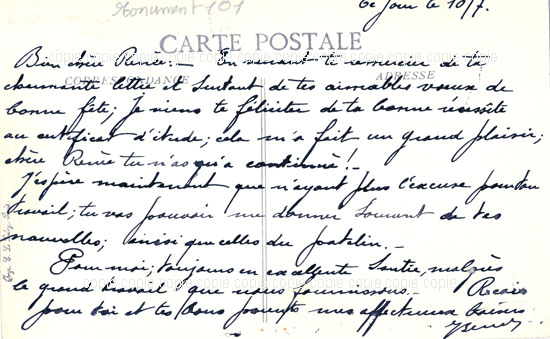 Monument 101
Ce jour le 10/7.
CARTE POSTALE
Bien chère Renée :- En venant te remercier de ta
CORRESPONDANCE
ADRESSE
charmante lettre et surtout de tes aimables vœux de
bonne fête; Je viens te féliciter de ta bonne réussite
au certificat d'étude; cela m'a fait un grand plaisir;
chère Renée tu n'as qu'à continué !-
J'espère maintenant que n'ayant plus l'excuse pour ton
travail; tu vas pouvoir me donner souvent de tes
nouvelles; ainsi que celles du patelin.-
Pour moi; toujours en excellente santée, malgrès
le grand travail que nous fournissons.- Reçois
pour toi et tes bons parents mes affectueux baisers